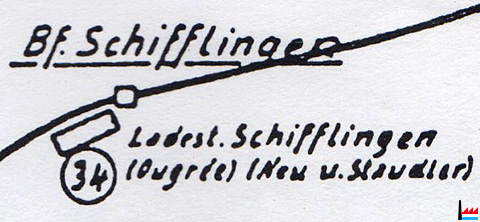 Bf. Schifflingen
Ladest. Schifflingen
34
(Ougrée) (Neu u. Staudler)